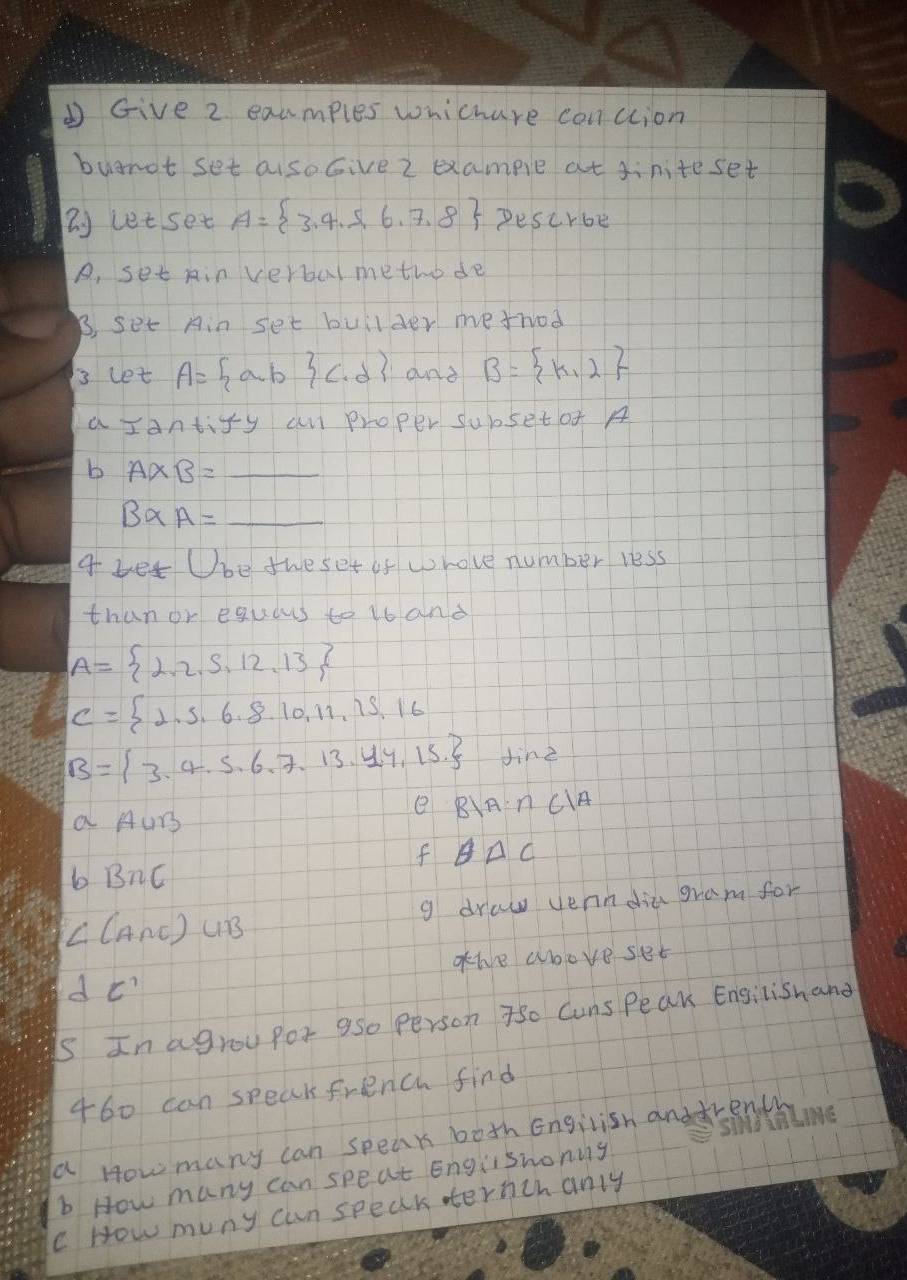 1) Give 2 examples which are conction
but not set also Give 2 example at finite set
2) Let set A = {3.4.5. 6.7.8} Descrbe
A, set A in verbal methode
B, set A in set builder method
3 let A = {a.b }c.d} and B = {k, 2}
a Identify all proper subset of A
b AXB = ____
BXA = ____
4 Let U be the set of whole number less
than or equals to 16 and
A = {2.2.5.12.13}
C = {2.5.6.8.10.11.15.16
B = {3.4.5.6.7.13.14.15.} find
a AUB
e B\A ∩ C\A
b B∩C
f B Δ C
C (A∩C) UB
g draw venn dia gram for
the above set
d C'
5 In a group of 950 person 750 can speak Engilish and
460 can speak french find
a How many can speak both Engilish and french
SINARLINE
b How many can speat Engilsh only
C How many can speak ternch only